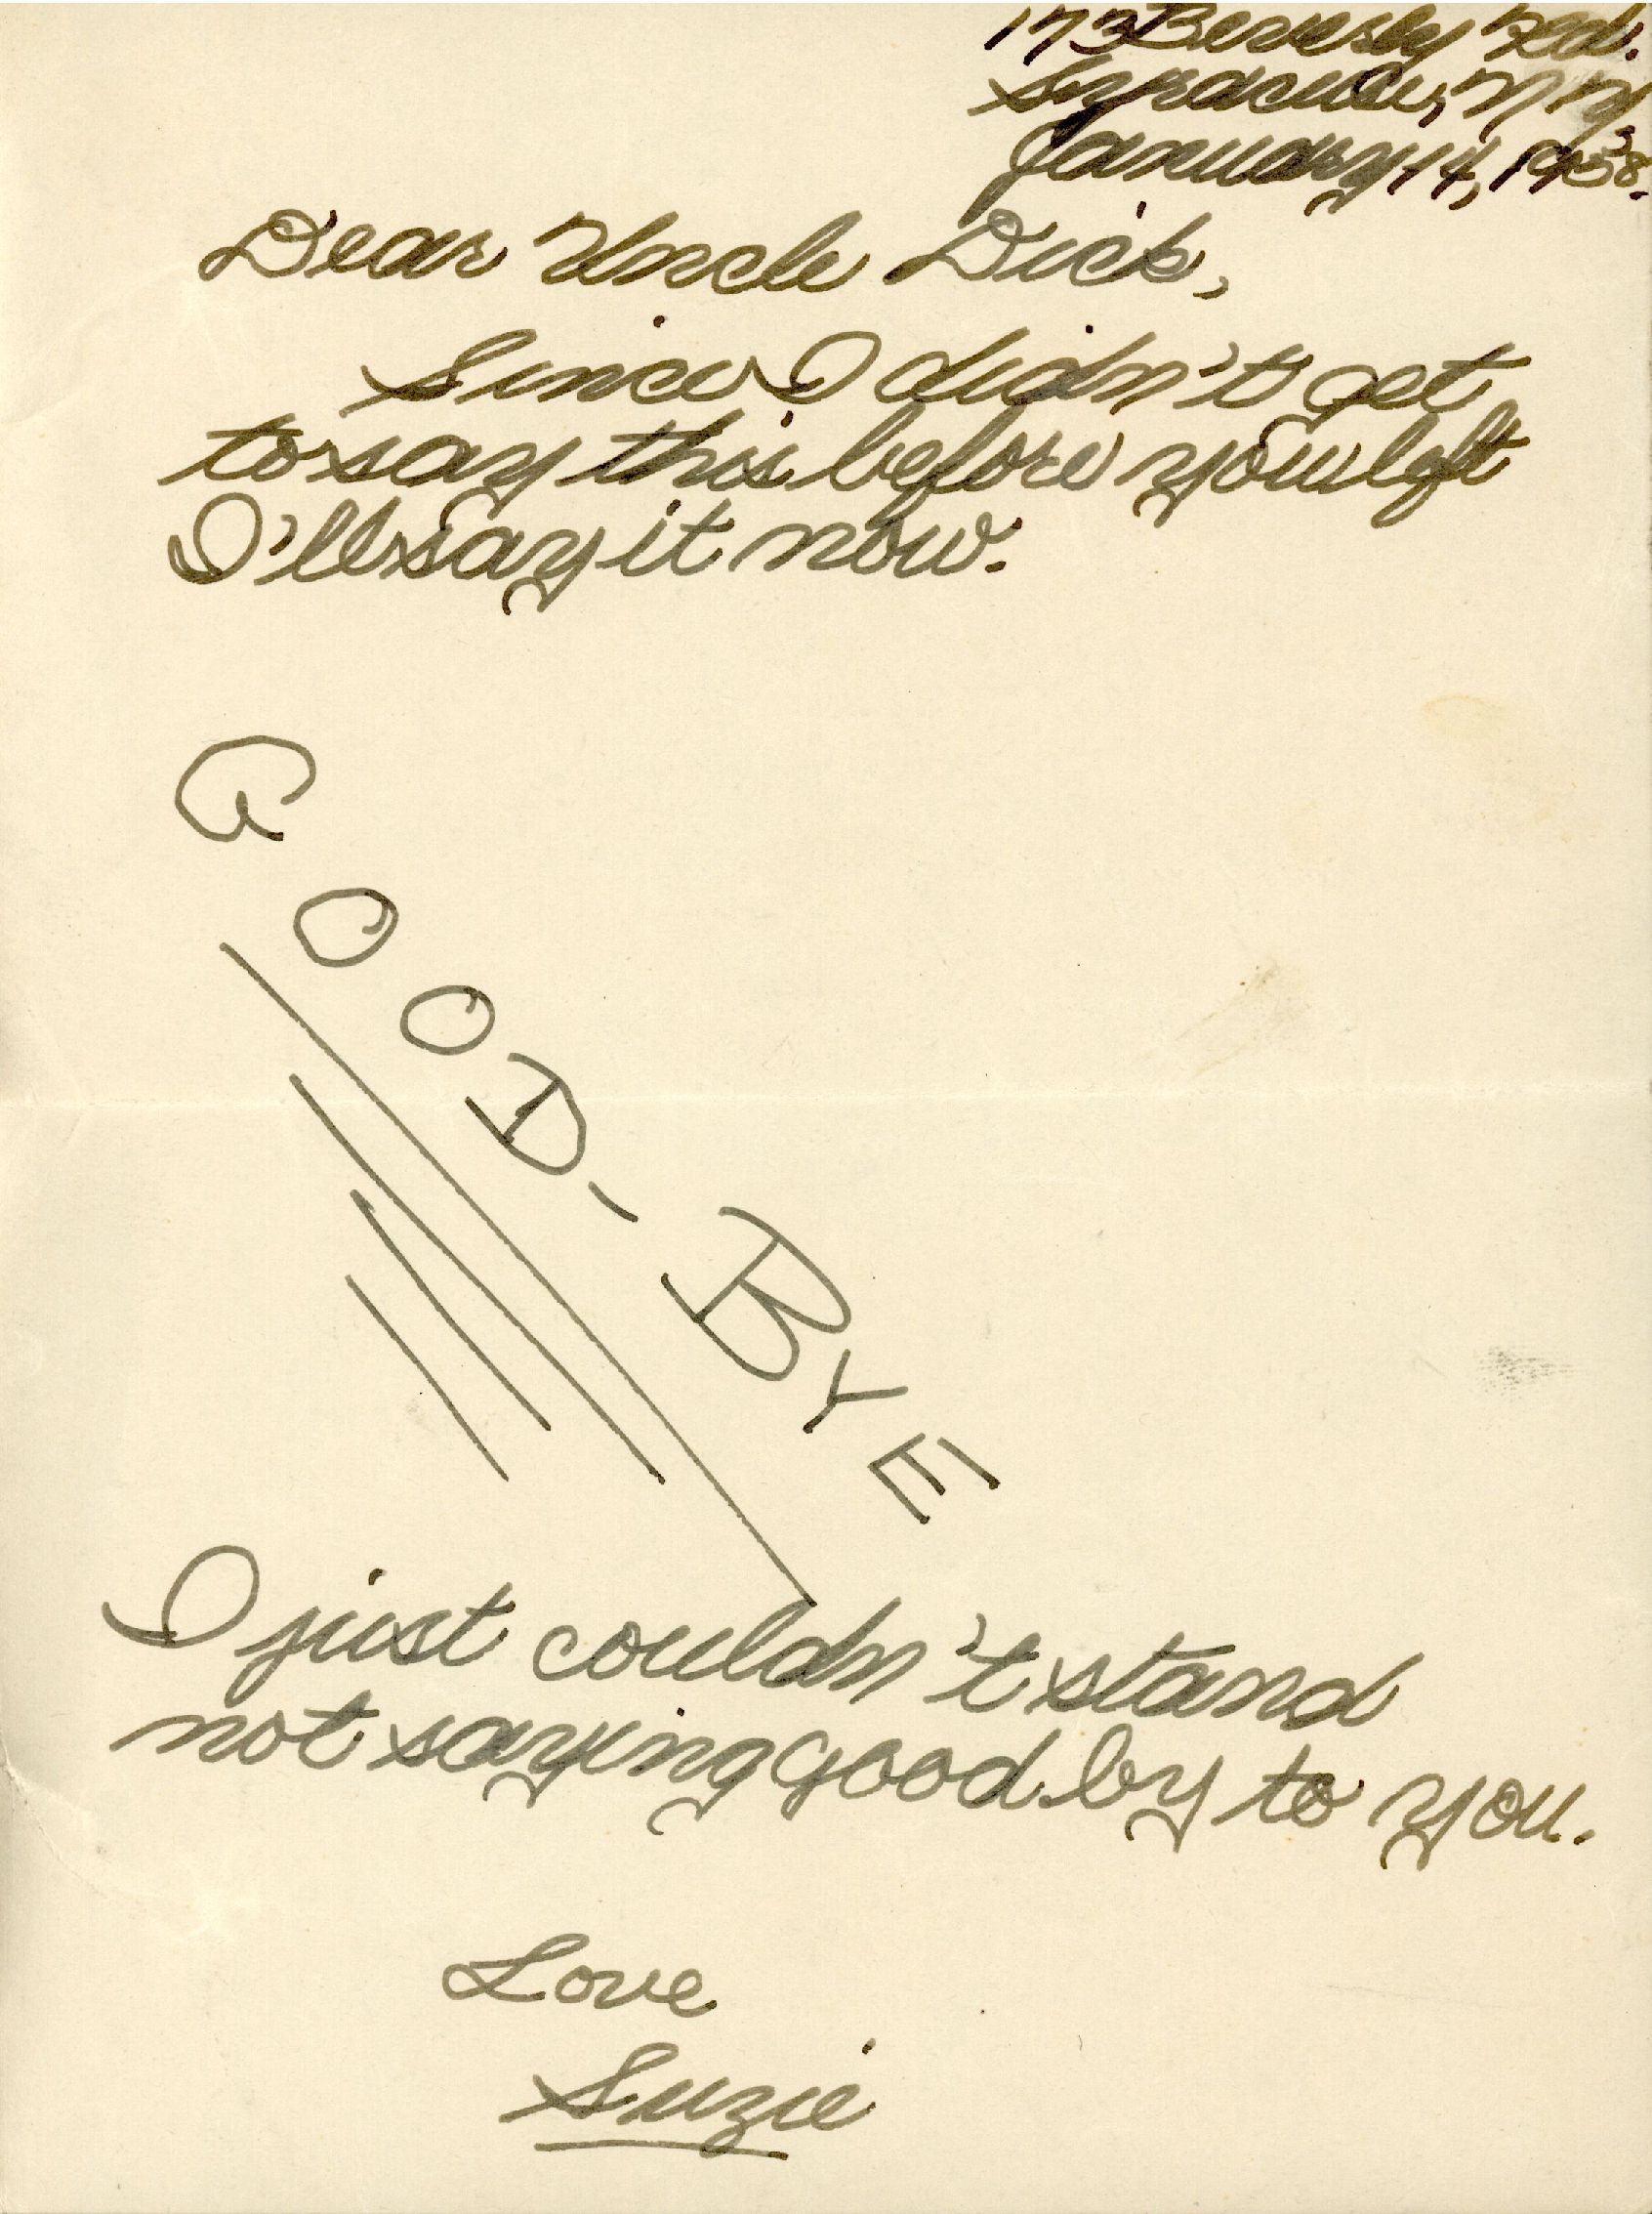 173 Beverly Rd.
Syracuse, N.Y.
January 14, 1938.
Dear Uncle Dick,
Since I didn't get
to say this before you left
I'll say it now.
GOOD-BYE
I just couldn't stand
not saying good by to you.
Love
Suzie